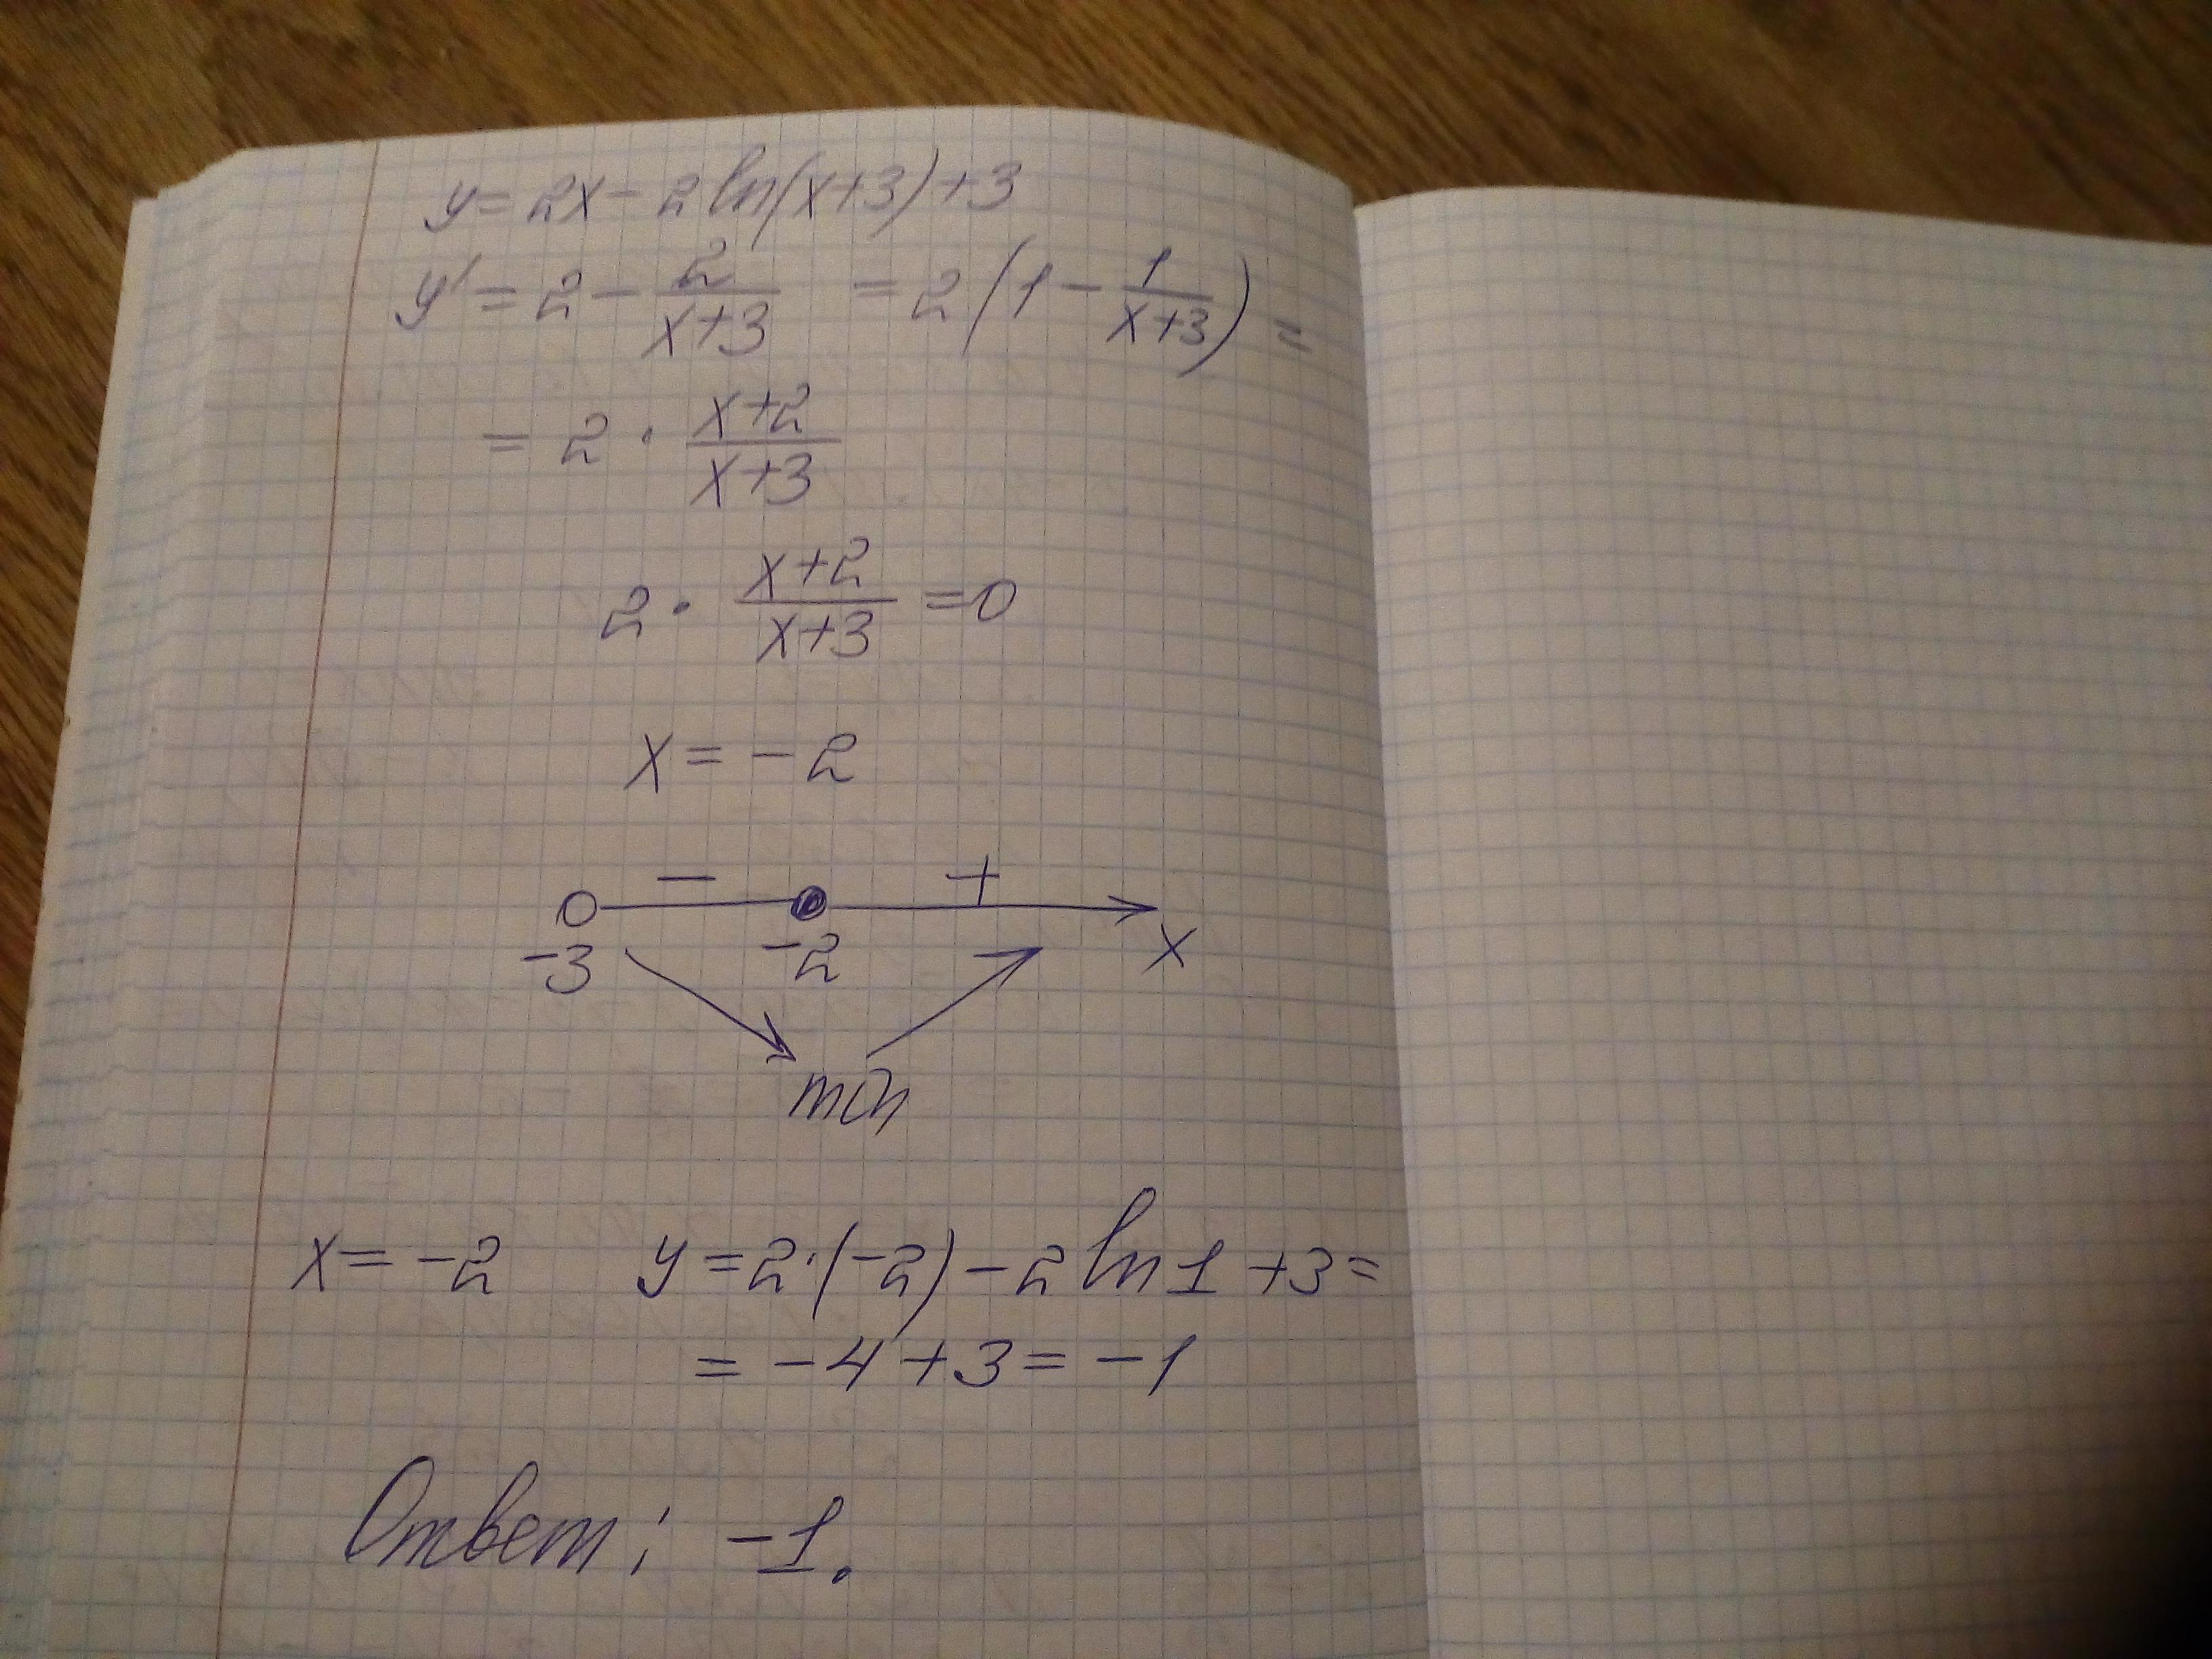 y = 2x - 2 ln(x+3) + 3
y' = 2 - 2/(x+3) = 2(1 - 1/(x+3)) =
= 2 · (x+2)/(x+3)
2 · (x+2)/(x+3) = 0
x = -2
- +
-3 -2 x
min
x = -2 y = 2·(-2) - 2 ln 1 + 3 =
= -4 + 3 = -1
Ответ: -1.